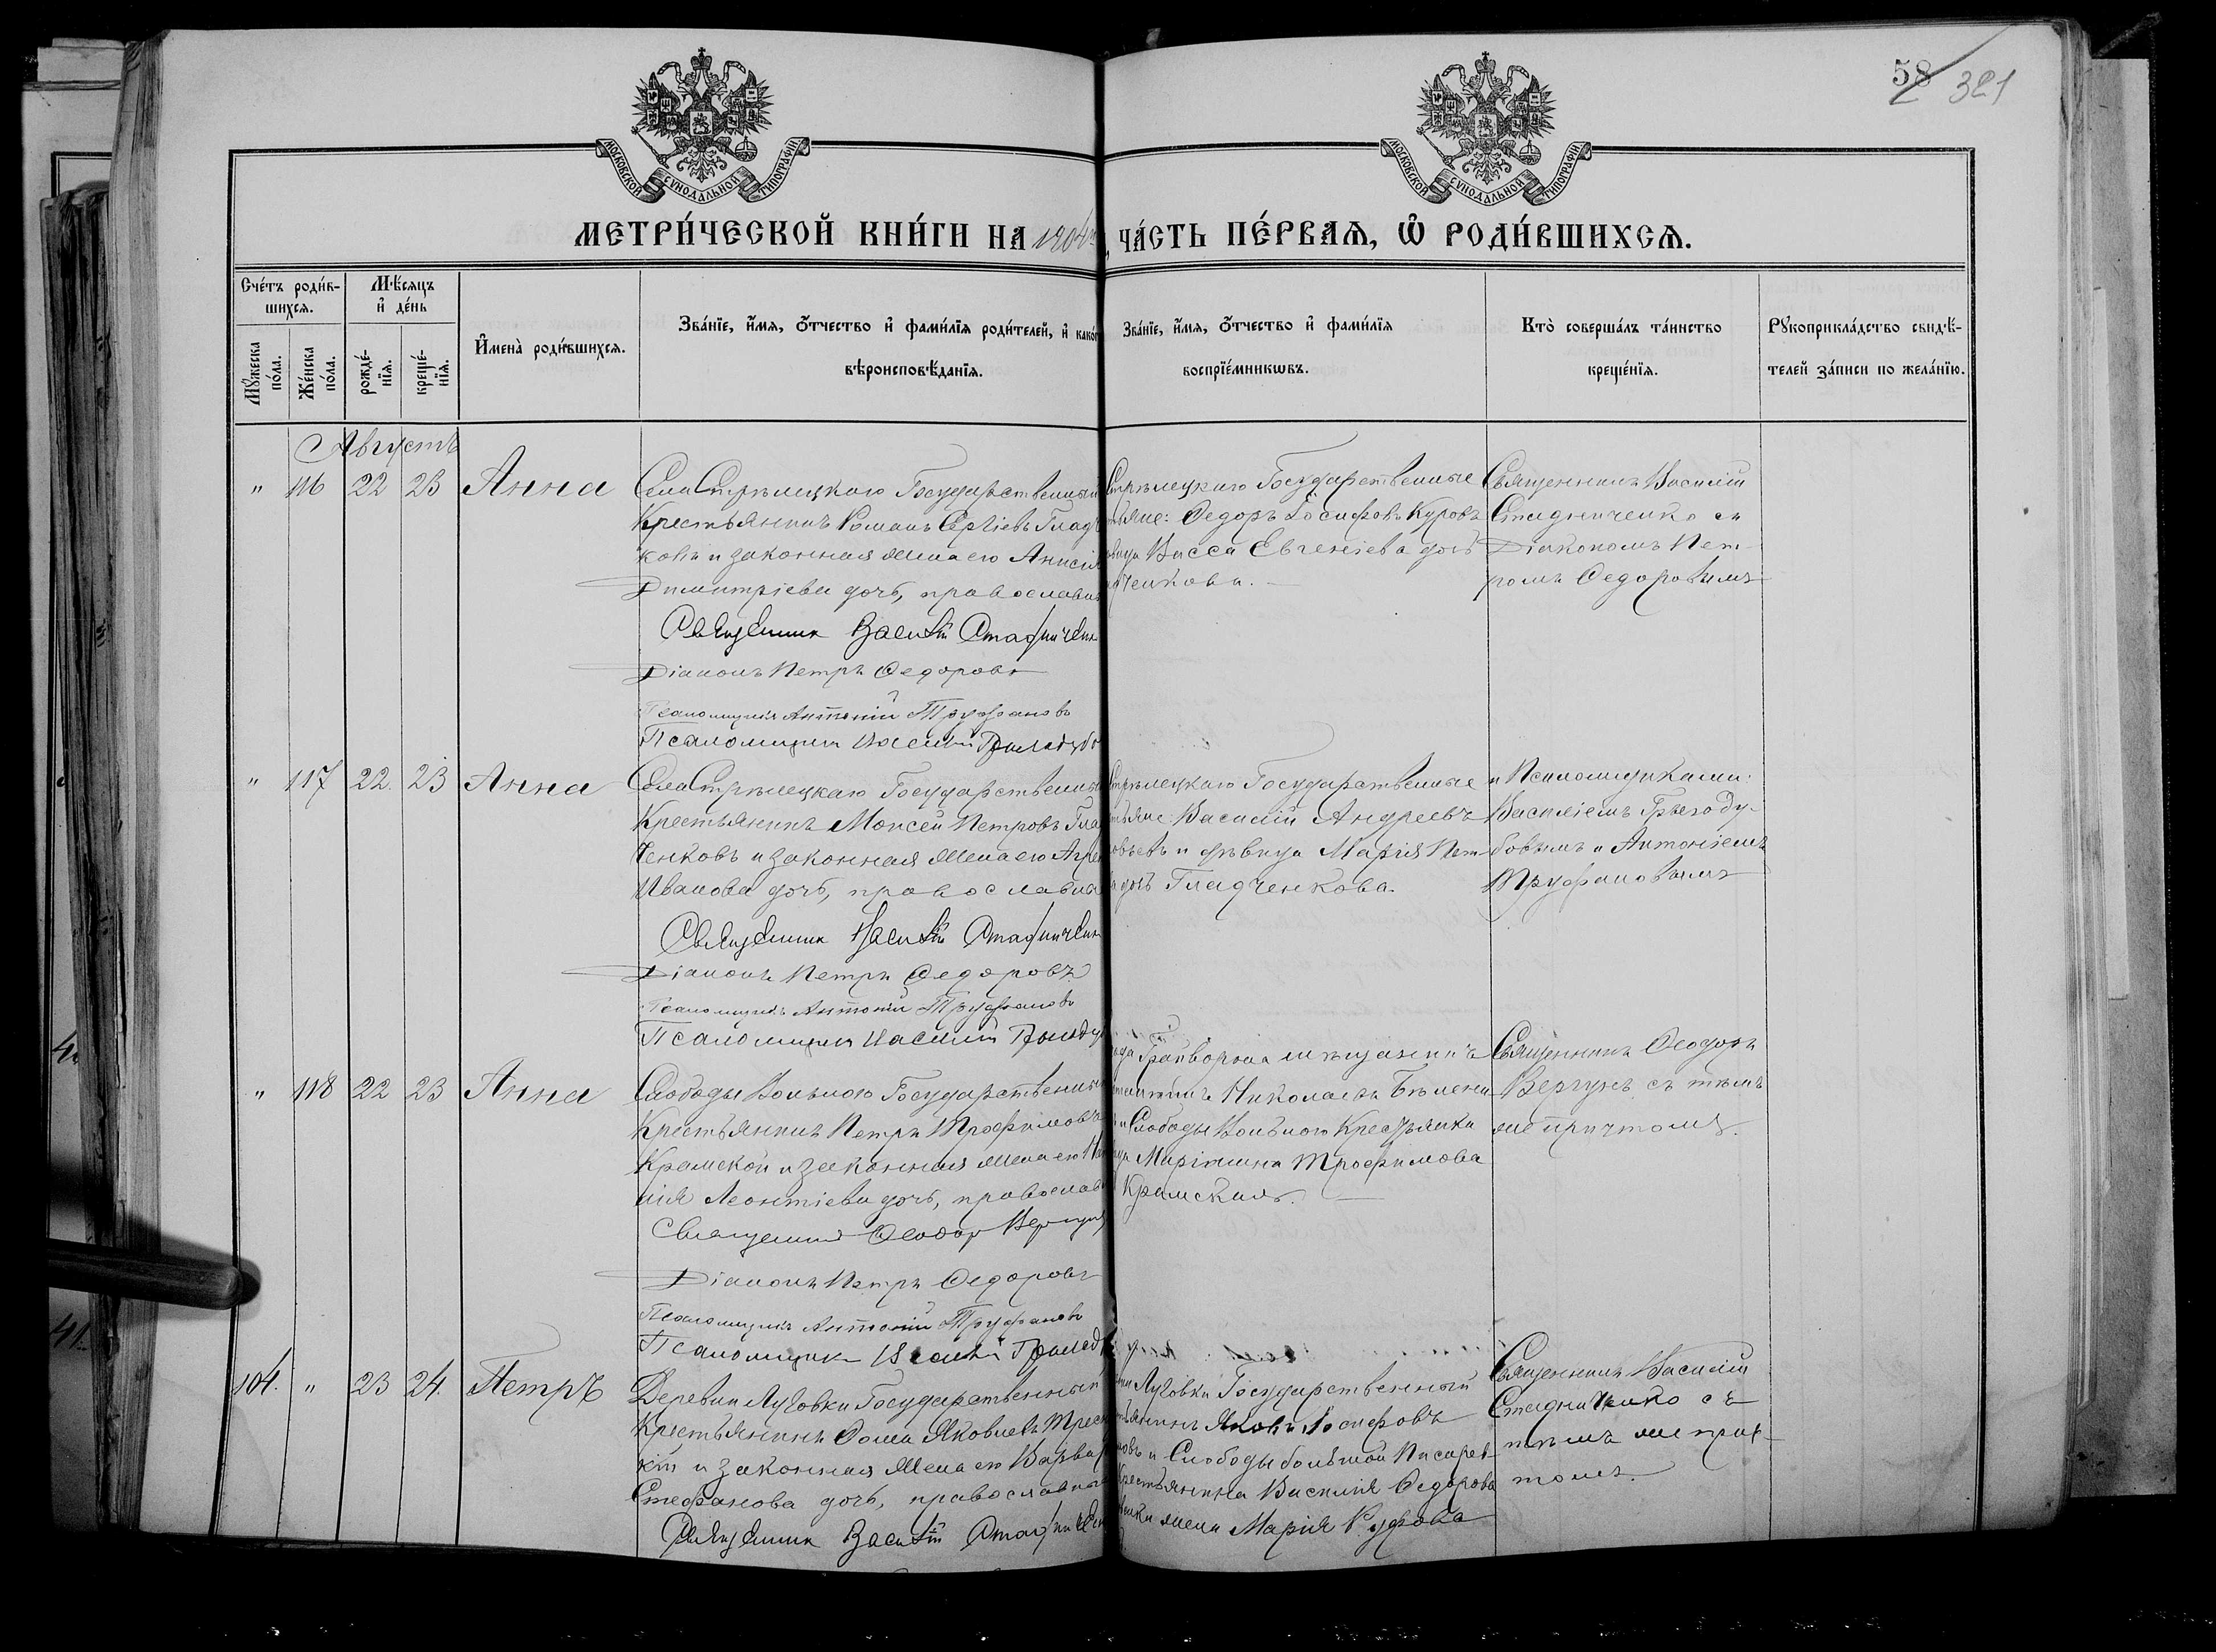 58 321
МОСКОВСКОЙ СѴНОДАЛЬНОЙ ТИПОГРАФІИ
МОСКОВСКОЙ СѴНОДАЛЬНОЙ ТИПОГРАФІИ
МЕТРИ́ЧЕСКОЙ КНИ́ГИ НА 1904 , ЧА́СТЬ ПЕ́РВАѦ, Ѡ РОДИ́ВШИХСѦ.
Сче́тъ роди́в-
шихсѧ.
Мꙋжеска по́ла.
Же́нска по́ла.
Мѣ́сяцъ
и҆ де́нь
рожде́-
нїѧ.
креще́-
нїѧ.
И҆мена̀ роди́вшихсѧ.
Зва́нїе, и҆́мѧ, ѻ҆́тчество и҆ фами́лїѧ роди́телей, и҆ како́
вѣроисповѣ́данїѧ.
Зва́нїе, и҆́мѧ, ѻ҆́тчество и҆ фами́лїѧ
воспрїе́мникѡвъ.
Кто̀ соверша́лъ та́инство
креще́нїѧ.
Рꙋкоприкла́дство свидѣ́-
телей за́писи по жела́нїю.
Августъ
" 116 22 23 Анна
Села Стрѣлецкаго Государственный
Крестьянинъ Романъ Сергіевъ Глад
ковъ и законная жена его Анисія
Димитріева дочь, православн
Священник Василій Стадниченк
Діаконъ Петръ Ѳедоровъ
Псаломщикъ Антоній Труфановъ
Псаломщикъ Василій
Стрѣлецкаго Государственные
тьяне: Ѳедоръ Іосифовъ Куровъ
вица Васса Евгеніева дочь
дченкова.
Священникъ Василій
Стадниченко съ
Діакономъ Пет-
ромъ Ѳедоровымъ
" 117 22. 23 Анна
Села Стрѣлецкаго Государственны
Крестьянинъ Моисей Петровъ Гла
ченковъ и законная жена его Агре
Иванова дочь, православна
Священник Василій Стадничен
Діаконъ Петръ Ѳедоровъ
Псаломщикъ Антоній Труфановъ
Псаломщикъ Василій
Стрѣлецкаго Государственные
тьяне Василій Андреевъ
и дѣвица Марія Пет-
дочь Гладченкова.
и Псаломщиками:
Василіемъ Грызоду-
бовымъ и Антоніемъ
Труфановымъ
" 118 22 23 Анна
Слободы Вольного Государственны
Крестьянинъ Петръ Трофимовъ
Крамской и законная жена его
нія Леонтіева дочь, православ
Священникъ Ѳеодор Вергун
Діаконъ Петръ Ѳедоровъ
Псаломщикъ Антоній Труфановъ
Псаломщикъ Василій
Грайворона мѣщанинъ
Николаевъ
и Слободы Вольного Крестьянка
Маріанна Трофимова
Крамская.
Священникъ Ѳеодоръ
Вергунъ съ тѣмъ
же причтомъ.
104. " 23 24. Петръ
Деревни Луговки Государственный
Крестьянинъ Ѳома Яковлевъ
и законная жена его Варвар
Стефанова дочь, православн
Священник Василій Стадничен
Луговки Государственный
тьянинъ Яковъ Іосифовъ
и Слободы большой Писарев
Крестьянина Василія Ѳедорова
жена Марія
Священникъ Василій
Стадниченко съ
тѣмъ же прич-
томъ.